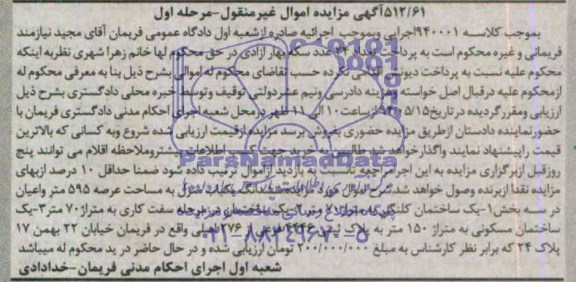 ۵۱۲/۶۱آگهی مزایده اموال غیرمنقول-مرحله اول
بموجب کلاسه ۹۴۰۰۰۱اجرایی وبموجب اجرائیه صادره ازشعبه اول دادگاه عمومی فریمان آقای مجید نیازمند
فریمانی و غیره محکوم است به پرداخت تعداد سکه بهار آزادی در حق محکوم لها خانم زهرا شهری نظربه اینکه
محکوم علیه نسبت به پرداخت دیون نکرده حسب تقاضای محکوم له اموالی بشرح ذیل بنا به معرفی محکوم له
ازمحکوم علیه درقبال اصل خواسته وهزینه دادرسی ونیم عشردولتی توقیف وتوسط خبره محلی دادگستری بشرح ذیل
ارزیابی ومقررگردیده در تاریخ ازساعت ۱۰ الی ۱۱ ظهر درمحل شعبه اجرای احکام مدنی دادگستری فریمان با
حضورنماینده دادستان ازطریق مزایده حضوری بفروش برسد مزایده ازقیمت ارزیابی شده شروع وبه کسانی که بالاترین
قیمت راپیشنهاد نمایند واگذارخواهد شد طالبین خرید جهت کسب اطلاعات بیشتروملاحظه اقلام می توانند پنج
روزقبل ازبرگزاری مزایده به این اجرا مراجعه تانسبت به بازدید ازاموال ترتیب داده شود ضمنا حداقل ۱۰ درصد ازبهای
مزایده نقدا ازبرنده وصول خواهد شد به مساحت عرصه ۵۹۵ متر واعیان
در سه بخش۱-یک ساختمان کلنگی متر ۲-یک ساختمان در مرحله سفت کاری به متراژ۷۰ متر۳-یک
ساختمان مسکونی به متراژ ۱۵۰ متر به پلاک ثبتی ۴۴۴۶ فرعی از ۲۷۶ اصلی واقع در فریمان خیابان ۲۲ بهمن ۱۷
پلاک ۲۴ که برابر نظر کارشناس به مبلغ ۲۰۰/۰۰۰/۰۰۰ تومان ارزیابی شده و در حال حاضر در ید محکوم له میباشد
شعبه اول اجرای احکام مدنی فریمان-خدادادی
ParsNamadData
پایگاه اطلاع رسانی
۰۲۱-۸۸۳۴۹۶۷۰-۵